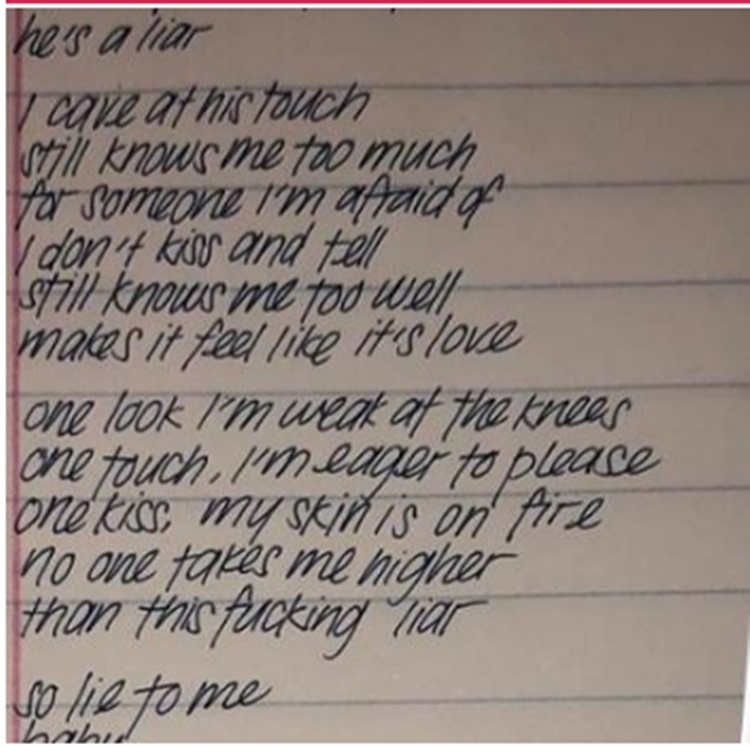 he's a liar
I cave at his touch
still knows me too much
for someone I'm afraid of
I don't kiss and tell
still knows me too well
makes it feel like it's love
one look I'm weak at the knees
one touch, I'm eager to please
one kiss, my skin is on fire
no one takes me higher
than this fucking liar
so lie to me
baby